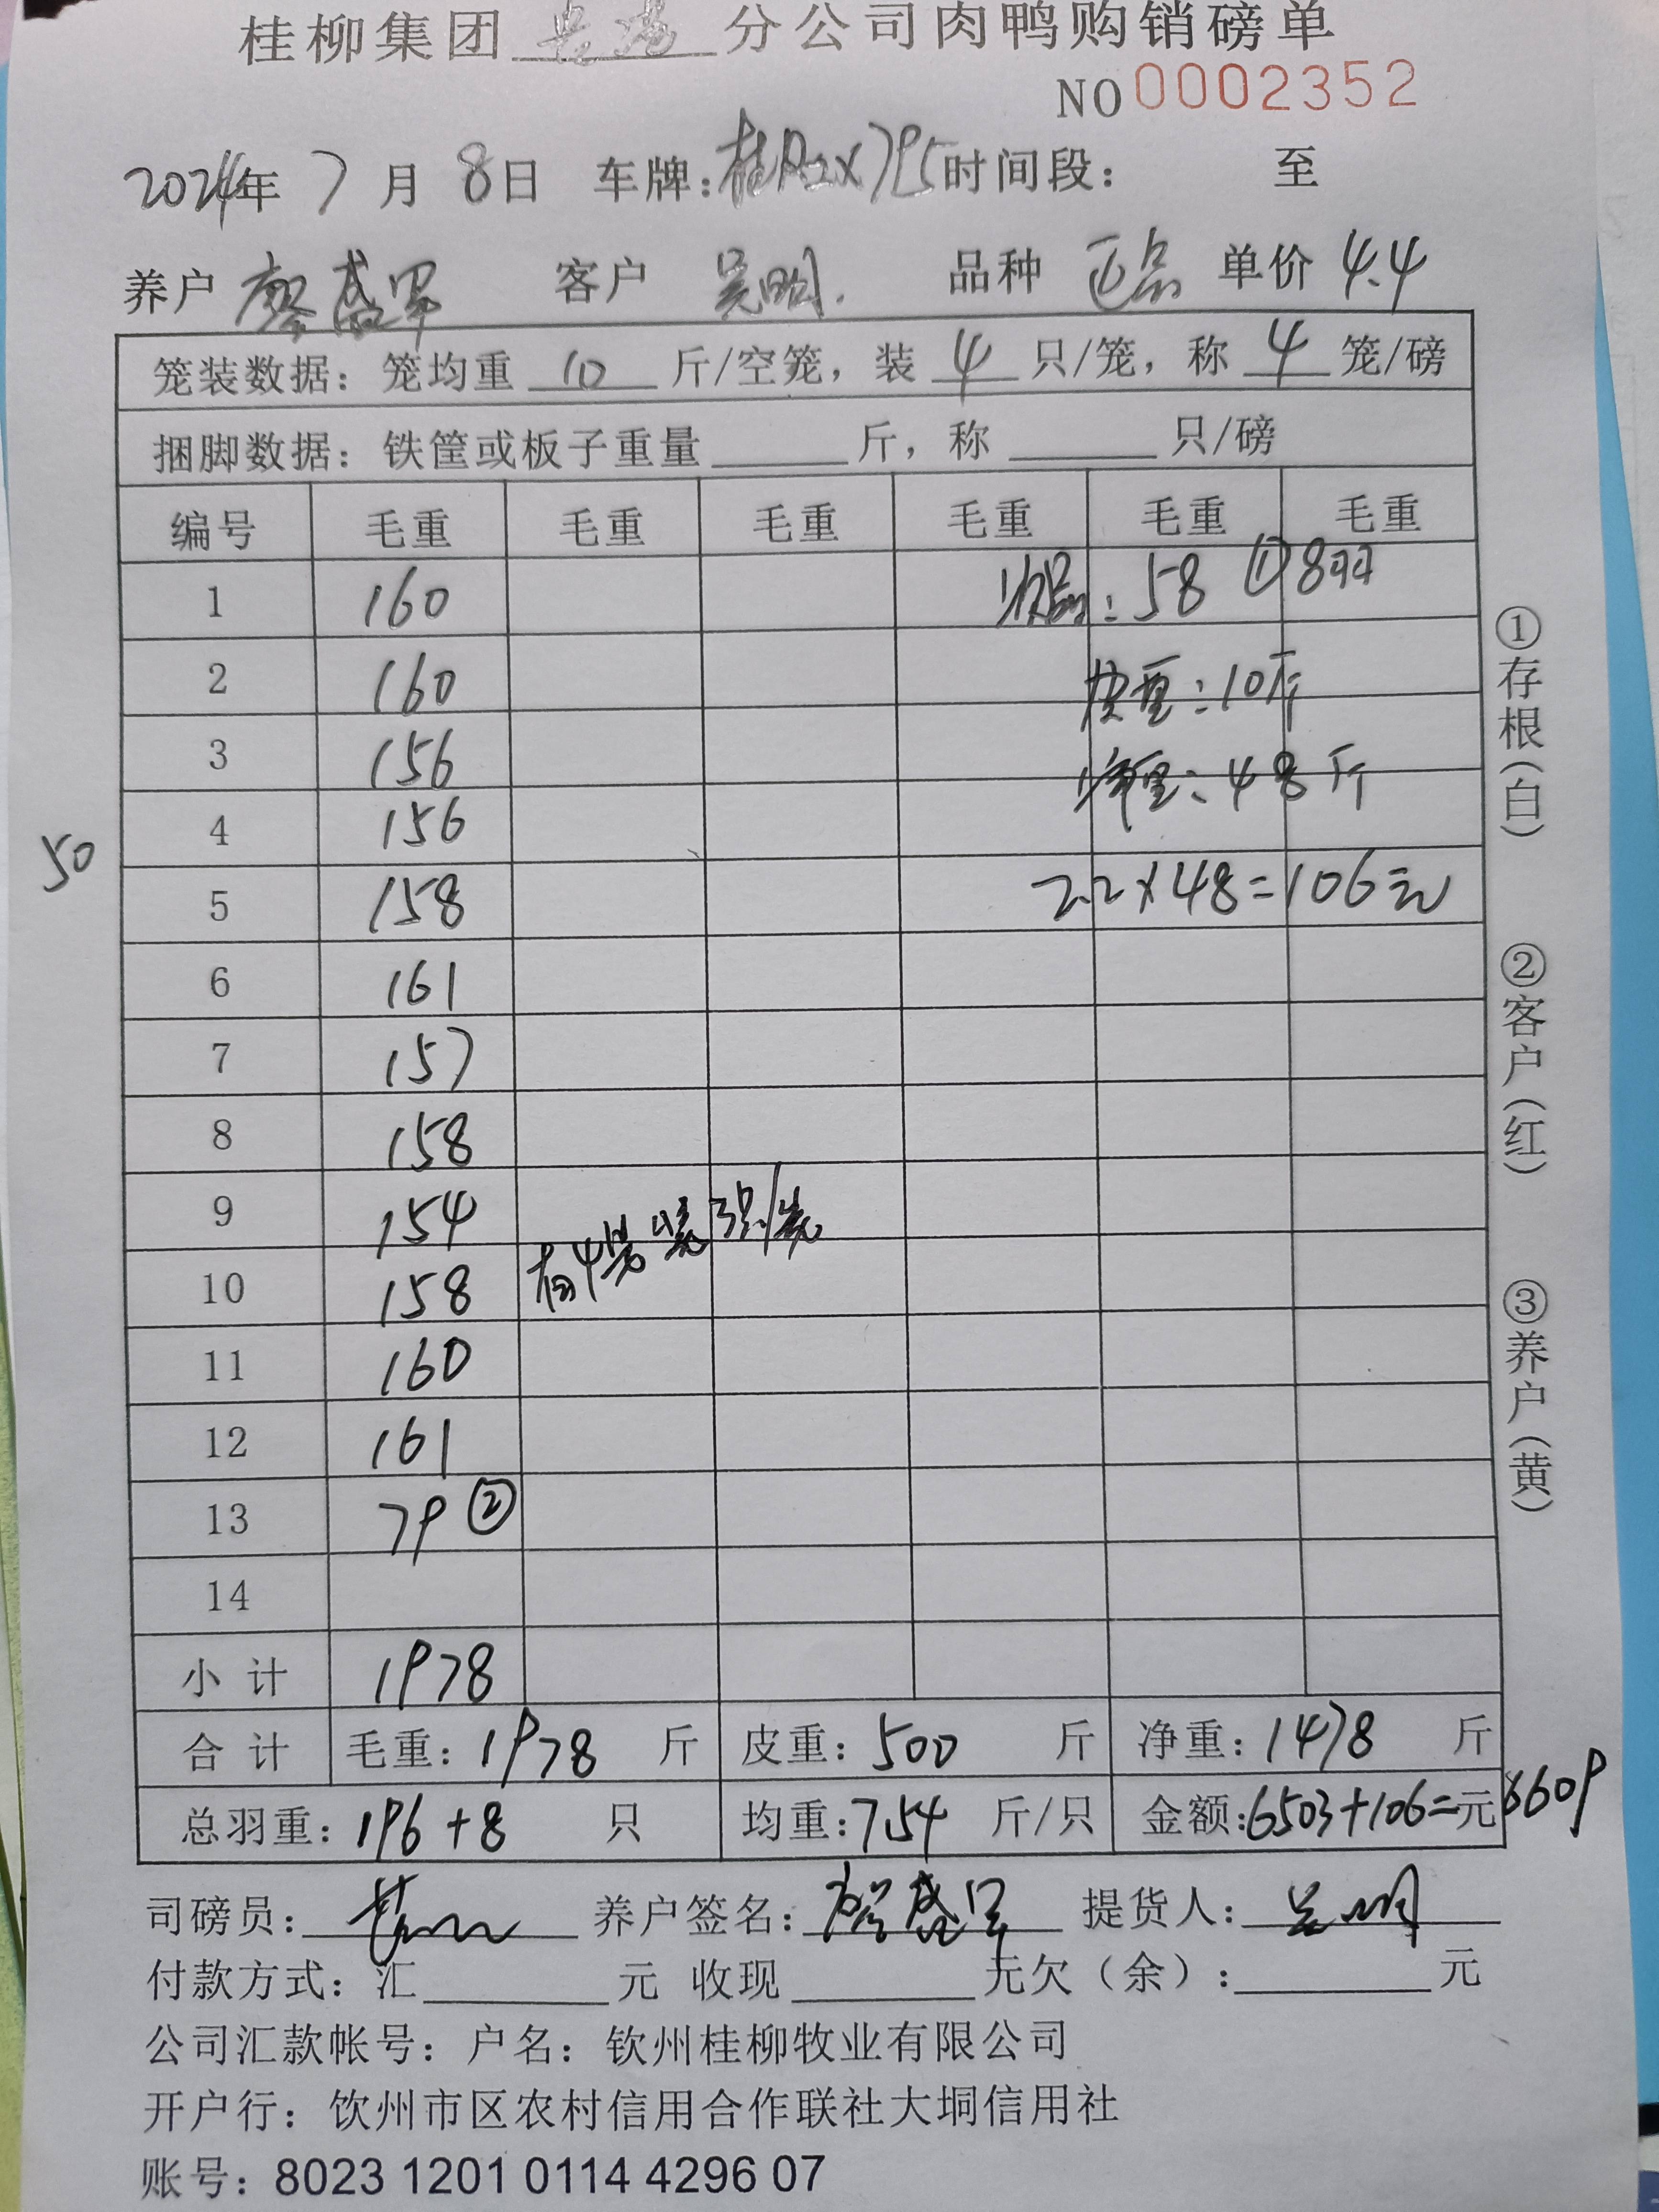 桂柳集团 分公司肉鸭购销磅单
NO 0002352
2024年 7月 8日 车牌: 时间段: 至
养户 廖盛军 客户 吴明. 品种 正品 单价 4.4
笼装数据: 笼均重 10 斤/空笼, 装 4 只/笼, 称 4 笼/磅
捆脚数据: 铁筐或板子重量______斤, 称______只/磅
编号 毛重 毛重 毛重 毛重 毛重 毛重
1 160 次品: 58 ① 8羽
2 160 皮重: 10斤
3 156 净重: 48斤
4 156
50
5 158 2.2×48=106元
6 161
7 157
8 158
9 154
10 158 有4笼装3只/笼
11 160
12 161
13 79 ②
14
小计 1978
合计 毛重: 1978 斤 皮重: 500 斤 净重: 1478 斤
总羽重: 196+8 只 均重: 7.54 斤/只 金额: 6503+106=元 6609
司磅员: 养户签名: 廖盛军 提货人: 吴明
付款方式: 汇______元 收现______元欠(余): ______元
公司汇款帐号: 户名: 钦州桂柳牧业有限公司
开户行: 钦州市区农村信用合作联社大垌信用社
账号: 8023 1201 0114 4296 07
①存根(白)
②客户(红)
③养户(黄)